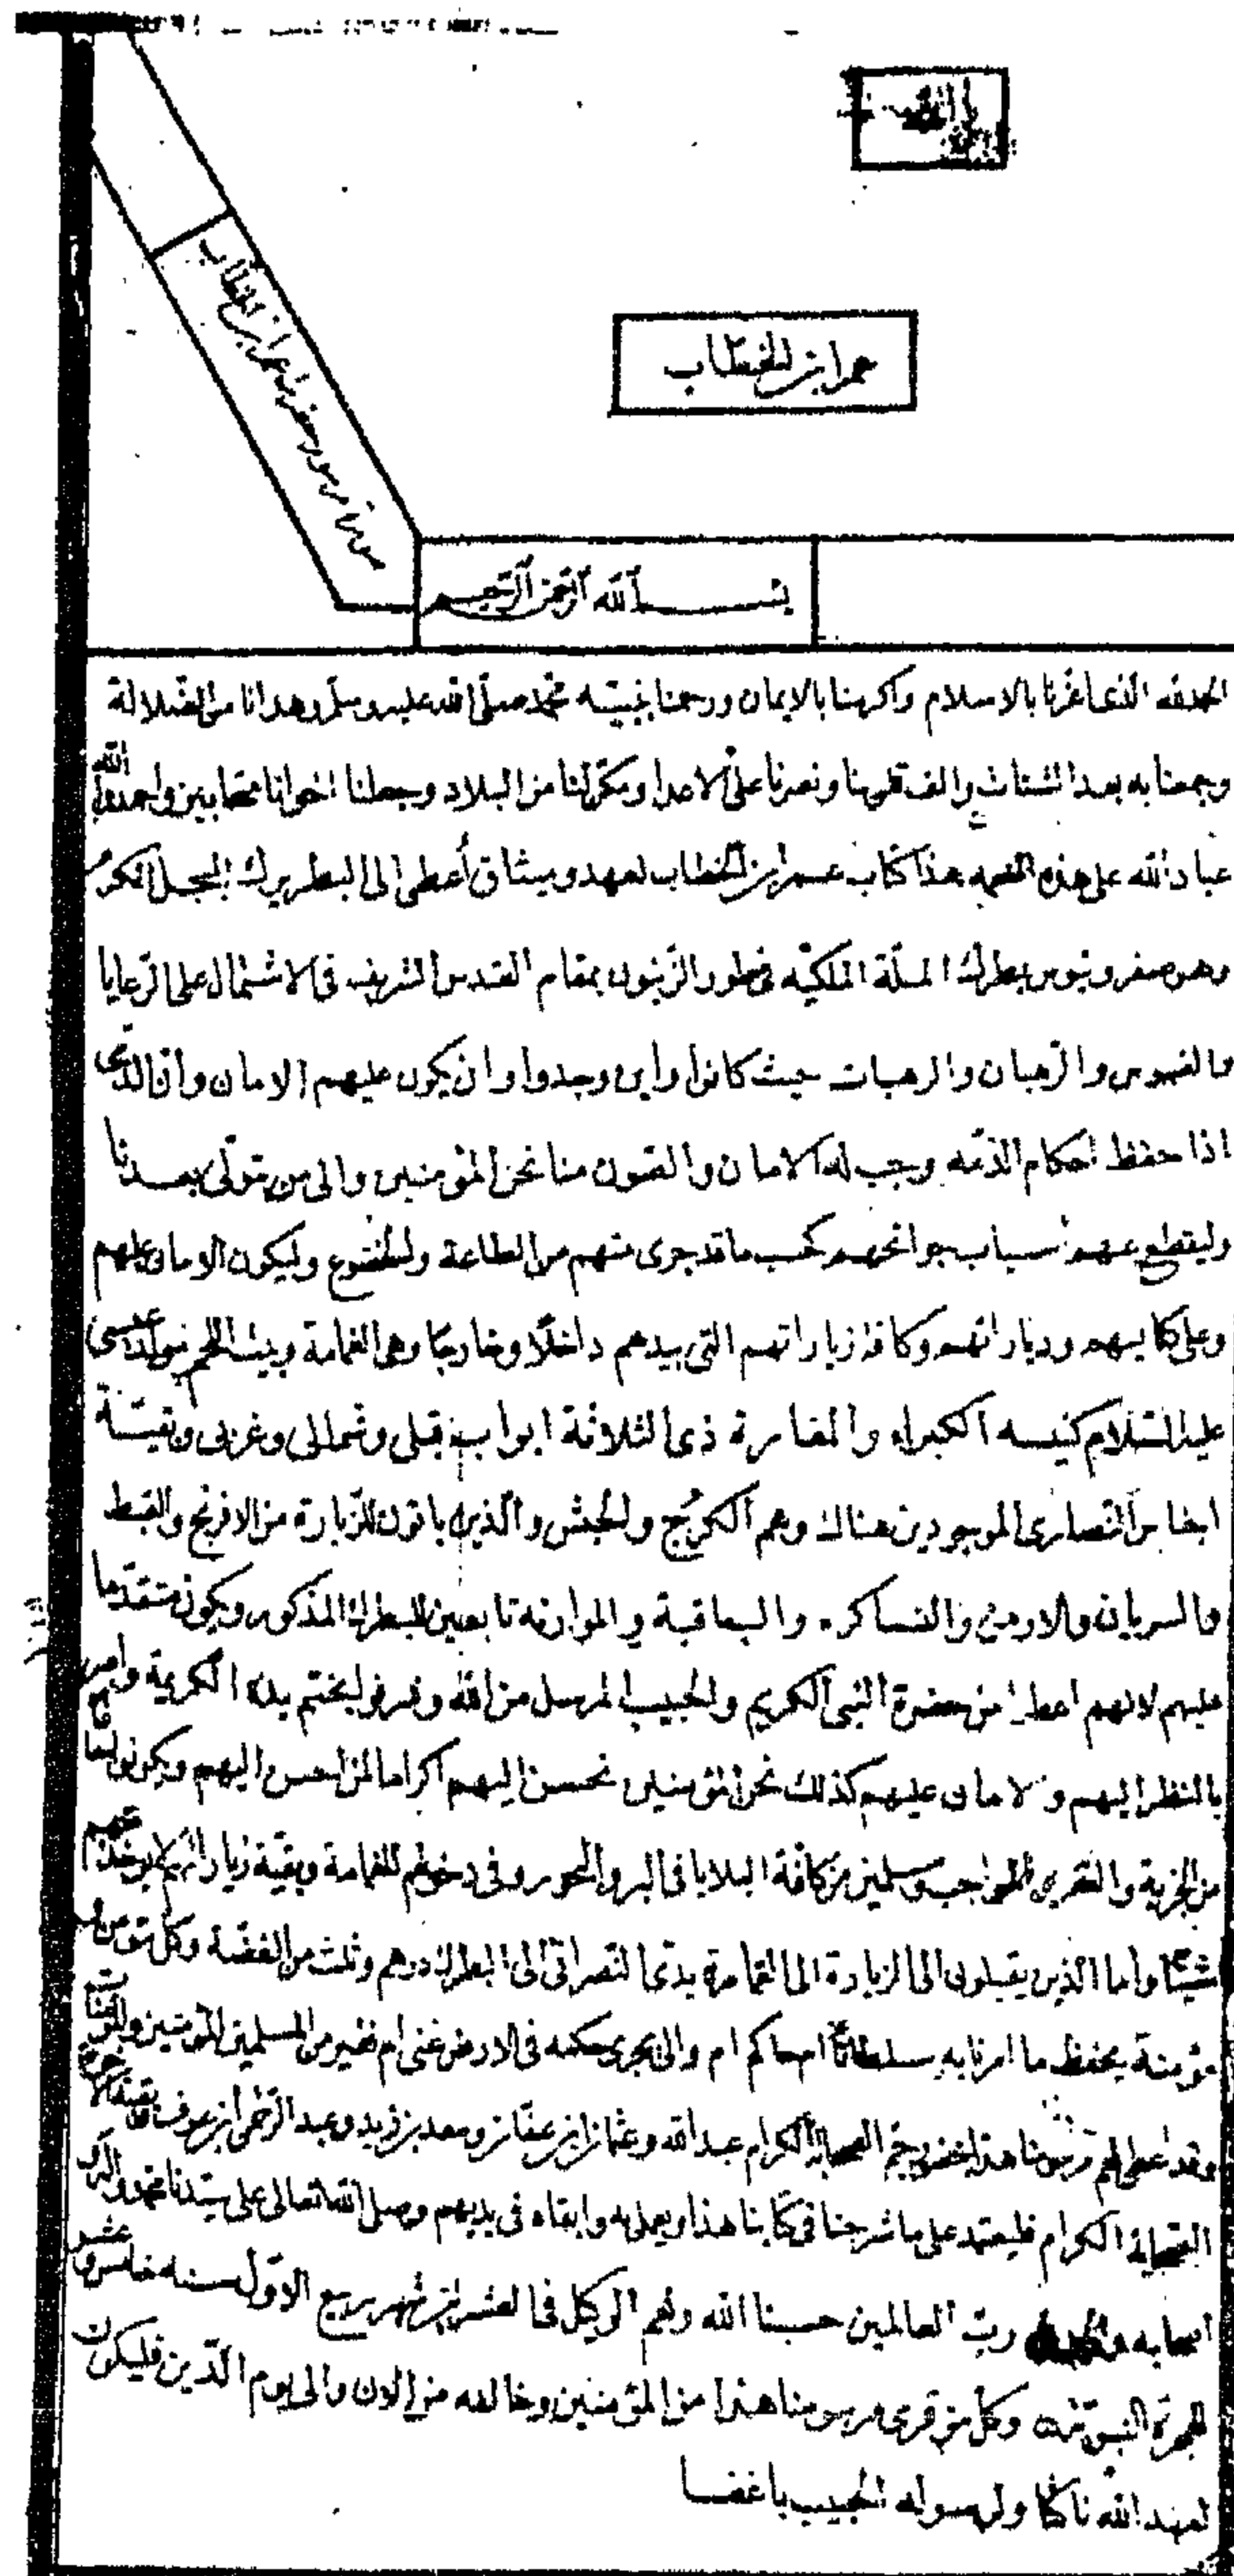 عمر ابن الخطاب
بسم الله الرحمن الرحيم
الحمد لله الذى اعزنا بالاسلام واكرمنا بالايمان ورحمنا بنبيته محمد صلى الله عليه وسلم وهدانا من الضلالة
وجمعنا به بعد الشتات والف قلوبنا ونصرنا على الاعدا ومكن لنا من البلاد وجعلنا اخوانا متحابين واحمدوا الله
عباد الله على هذه النعمه هذا كتاب عمر ابن الخطاب لعهد وميثاق أعطى الى البطريرك المبجل المكرم
وهو صفرونيوس بطرك الملة الملكيّه فى طور الزيتون بمقام القدس الشريف فى الاشتمال على الرعايا
والقسوس والرهبان والرهبات حيث كانوا واين وجدوا وان يكون عليهم الامان وان الذمى
اذا حفظ احكام الذمه وجب له الامان والصون منا نحن المؤمنين والى من يتولى بعدنا
وليقطع عنهم اسباب جوانحهم كحسب ما قد جرى منهم من الطاعة والخضوع وليكون الامان عليهم
وعلى كنايسهم ودياراتهم وكافة زياراتهم التى بيدهم داخلًا وخارجًا وهى القمامة وبيت اللحم مولد عيسى
عليه السّلام كنيسه الكبراء والمغارة ذى الثلاثة ابواب قبلى وشمالى وغربى وبقيّة
اجناس النصارى الموجودين هناك وهم الكرُج والحبش والذين ياتون للزيارة من الافرنج والقبط
والسريان والارمن والنساكره واليعاقبة والموارنه تابعين للبطرك المذكور ويكون متقدما
عليهم لانهم اعطوا من حضرة النبى الكريم والحبيب المرسل من الله وشرفوا بختم يده الكريمة وامر
بالنظر اليهم والامان عليهم كذلك نحن المؤمنين نحسن اليهم اكراما لمن احسن اليهم ويكونوا معافا
من الجزية والغفر والمواجب ومسلمين من كافة البلايا فى البر والبحور وفى دخولهم للقمامة وبقيّة زياراتهم لا يؤخذ منهم
شيئًا واما الذين يقبلون الى الزيارة الى القمامة يؤدى النصرانى الى البطرك درهم وثلث من الفضة وكل مؤمن و
مؤمنة يحفظ ما امرنا به سلطانًا ام حاكم ام والى يجرى حكمه فى الارض غنى ام فقير من المسلمين المؤمنين والمؤمنات
وقد اعطى لهم مرسومنا هذا بحضور جمّ الصحابة الكرام عبد الله وعثمان ابن عفان وسعد بن زيد وعبد الرحمن ابن عوف وبقية الاخوة
الصحابة الكرام فليعتمد على ما شرحنا فى كتابنا هذا ويعمل به وابقاه فى يديهم وصلى الله تعالى على سيدنا محمد واله و
اصحابه والحمد لله ربّ العالمين حسبنا الله ونعم الوكيل فى العشرين من شهر ربيع الاول سنه خامس عشر
للهجرة النبويّة وكل من قرى مرسومنا هذا من المؤمنين وخالفه من الان والى يوم الدّين فليكون
لعهد الله ناكثًا ولرسوله الحبيب باغضا